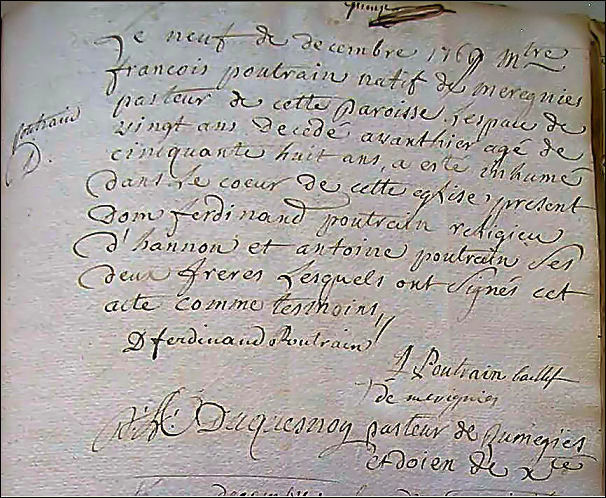 Le neuf de decembre 1769 mtre
francois poutrain natif de meregnies
pasteur de cette paroisse, l'espace de
vingt ans decedé avanthier agé de
cinquante huit ans, a esté inhumé
dans le coeur de cette eglise, present
Dom ferdinand poutrain religieu
d'hannon et antoine poutrain ses
deux freres lesquels ont signés cet
acte comme tesmoins
poutrain
D.
D ferdinand Poutrain
A Poutrain baillf
de merignies
Duquesnoy pasteur de Rumegies
et doien de xté